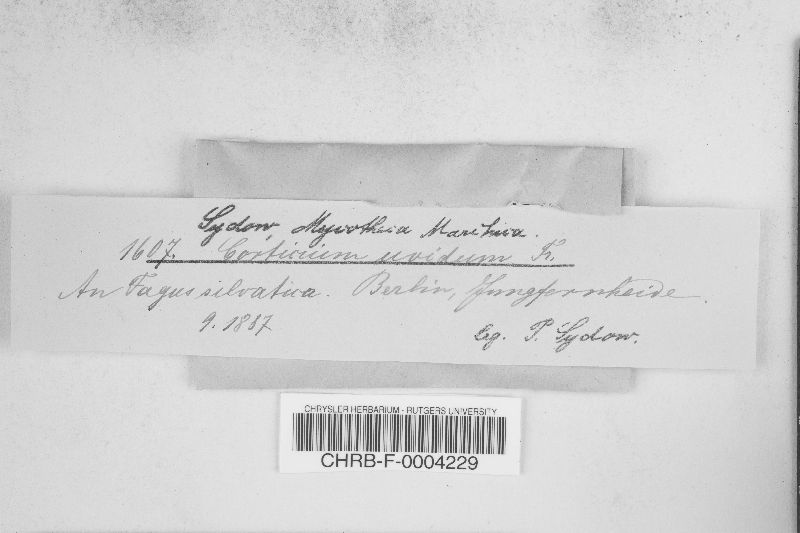 Sydow, Mycotheca Marchica.
1607. Corticium uvidum Fr.
An Fagus silvatica. Berlin, Jungfernheide.
9. 1887
leg. P. Sydow.
CHRYSLER HERBARIUM - RUTGERS UNIVERSITY
CHRB-F-0004229